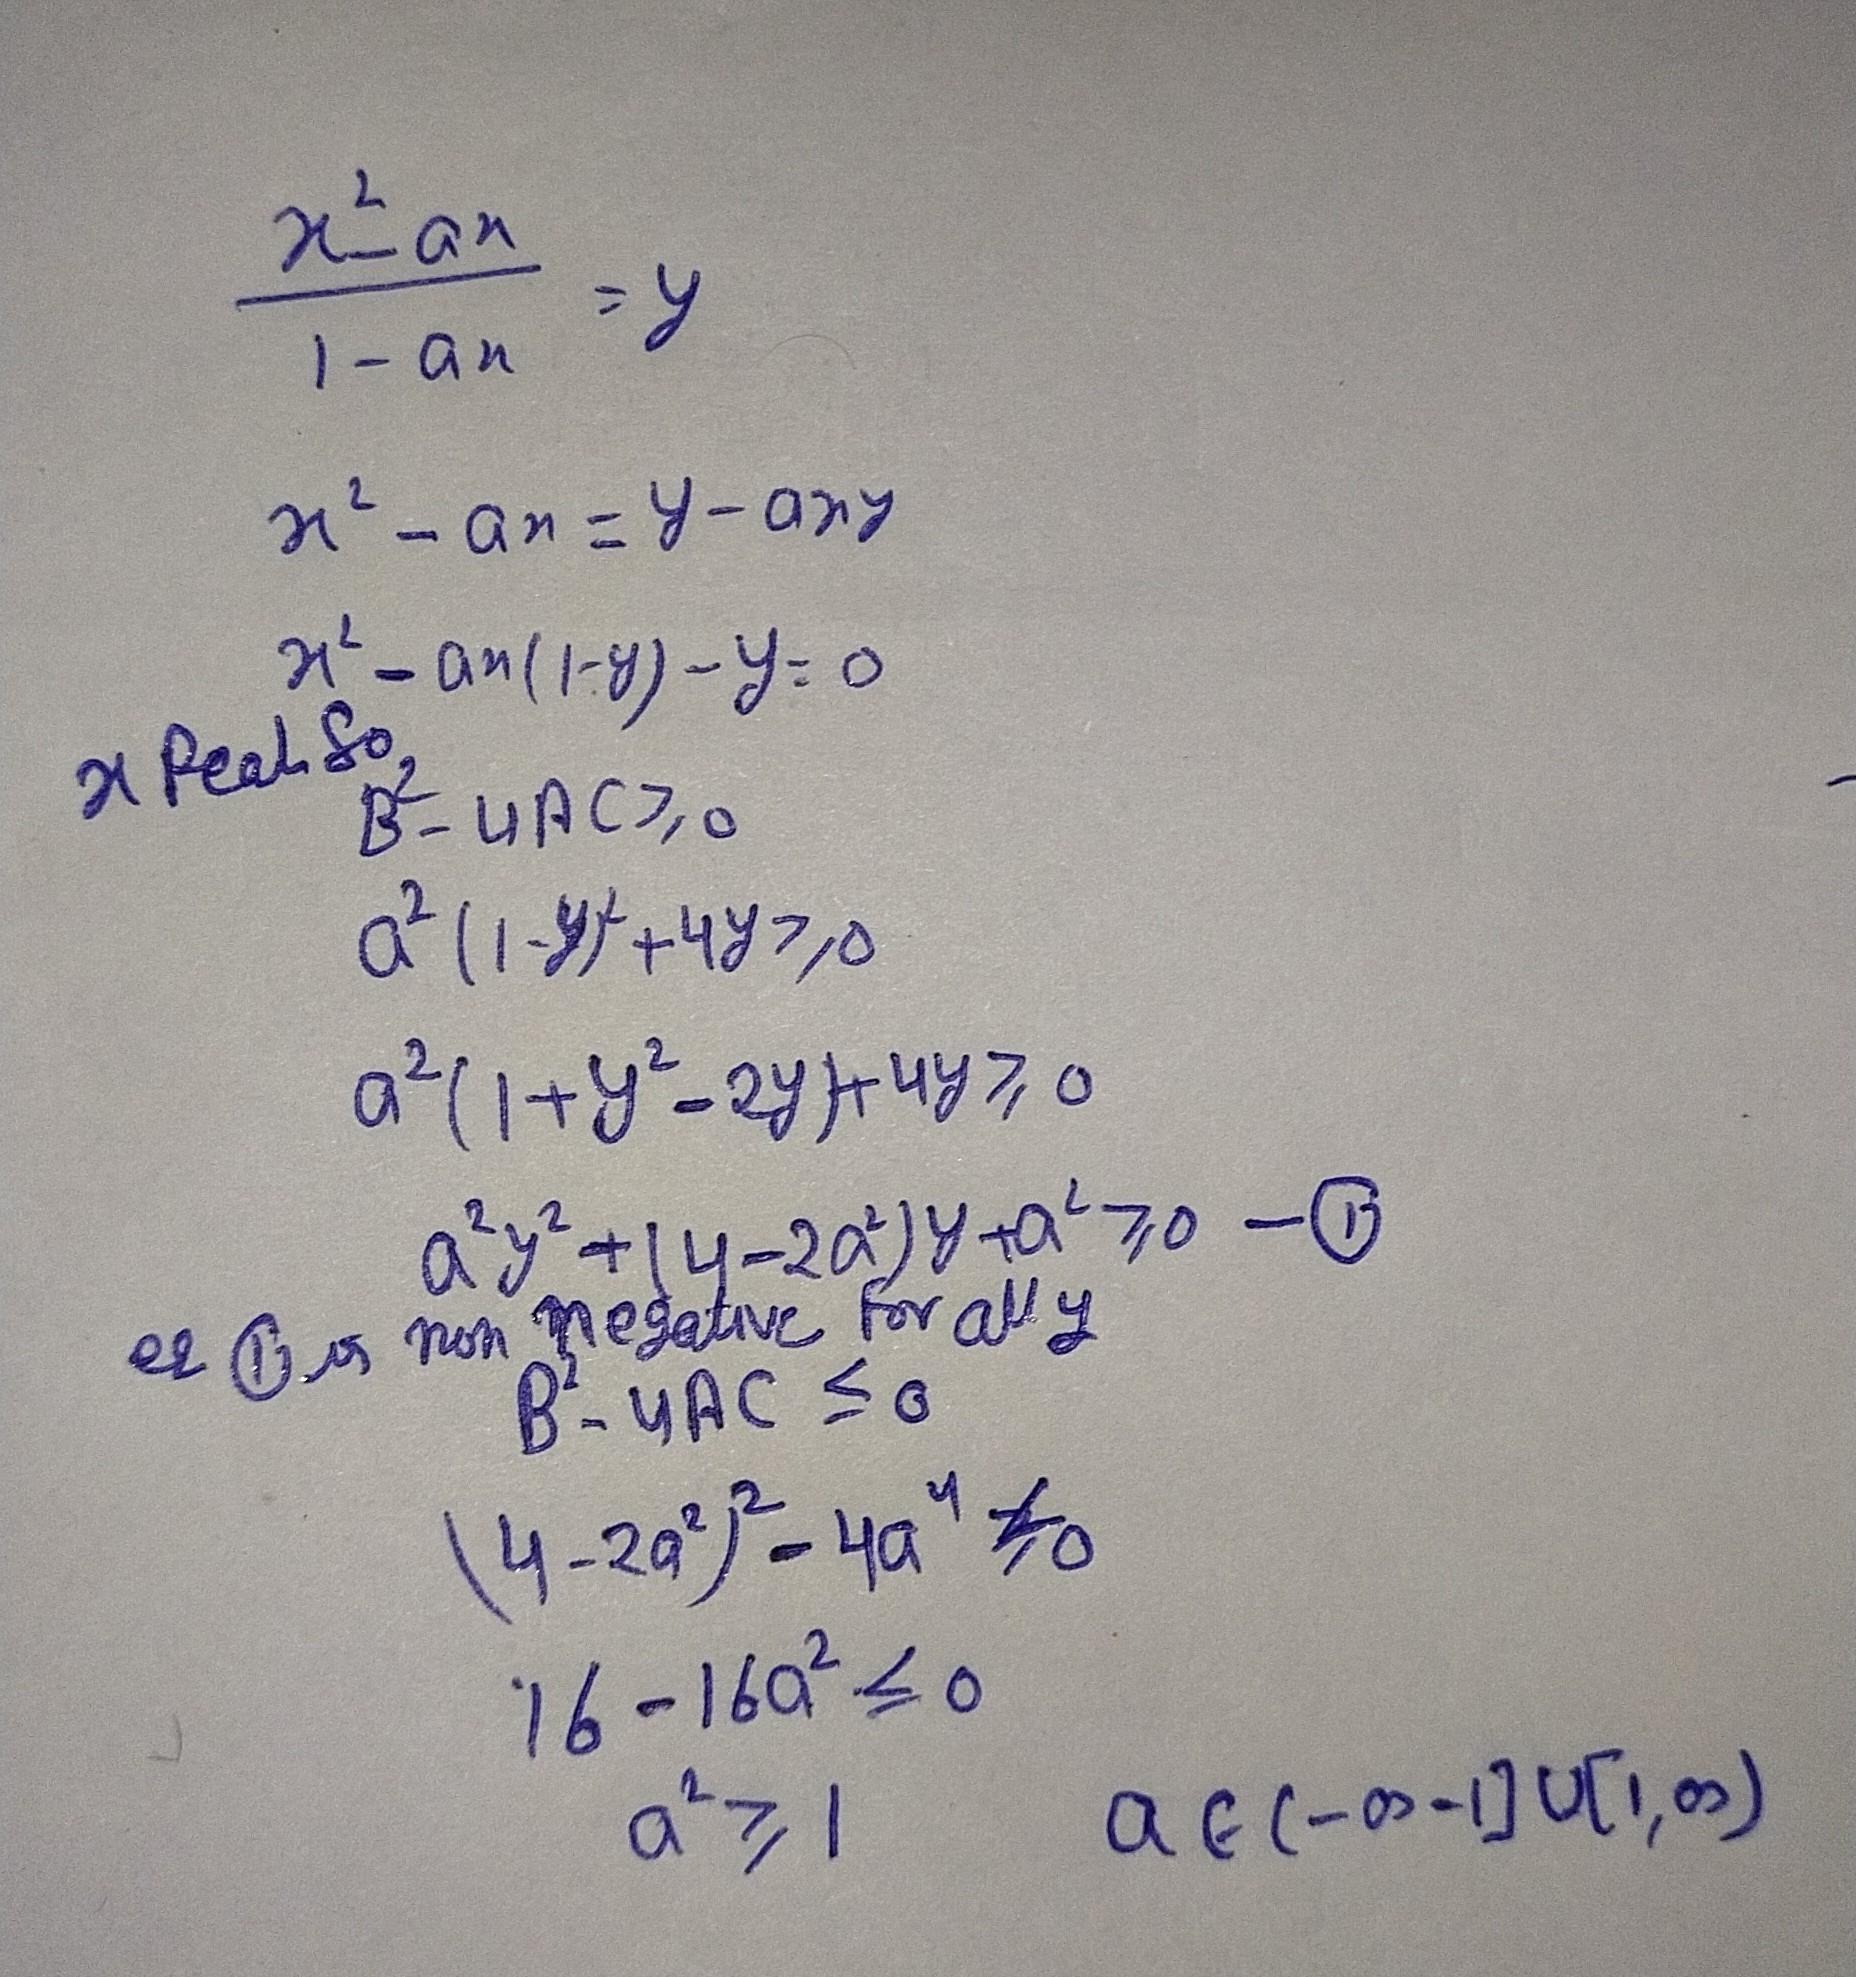 x² - ax
1 - ax
= y
x² - ax = y - axy
x² - ax(1-y) - y = 0
x Real So,
B² - 4AC ≥ 0
a²(1-y)² + 4y ≥ 0
a²(1 + y² - 2y) + 4y ≥ 0
a²y² + (4 - 2a²)y + a² ≥ 0 - ①
① is non negative for all y
B² - 4AC ≤ 0
(4 - 2a²)² - 4a⁴ ≤ 0
16 - 16a² ≤ 0
a² ≥ 1 a ∈ (-∞ -1] ∪ [1, ∞)